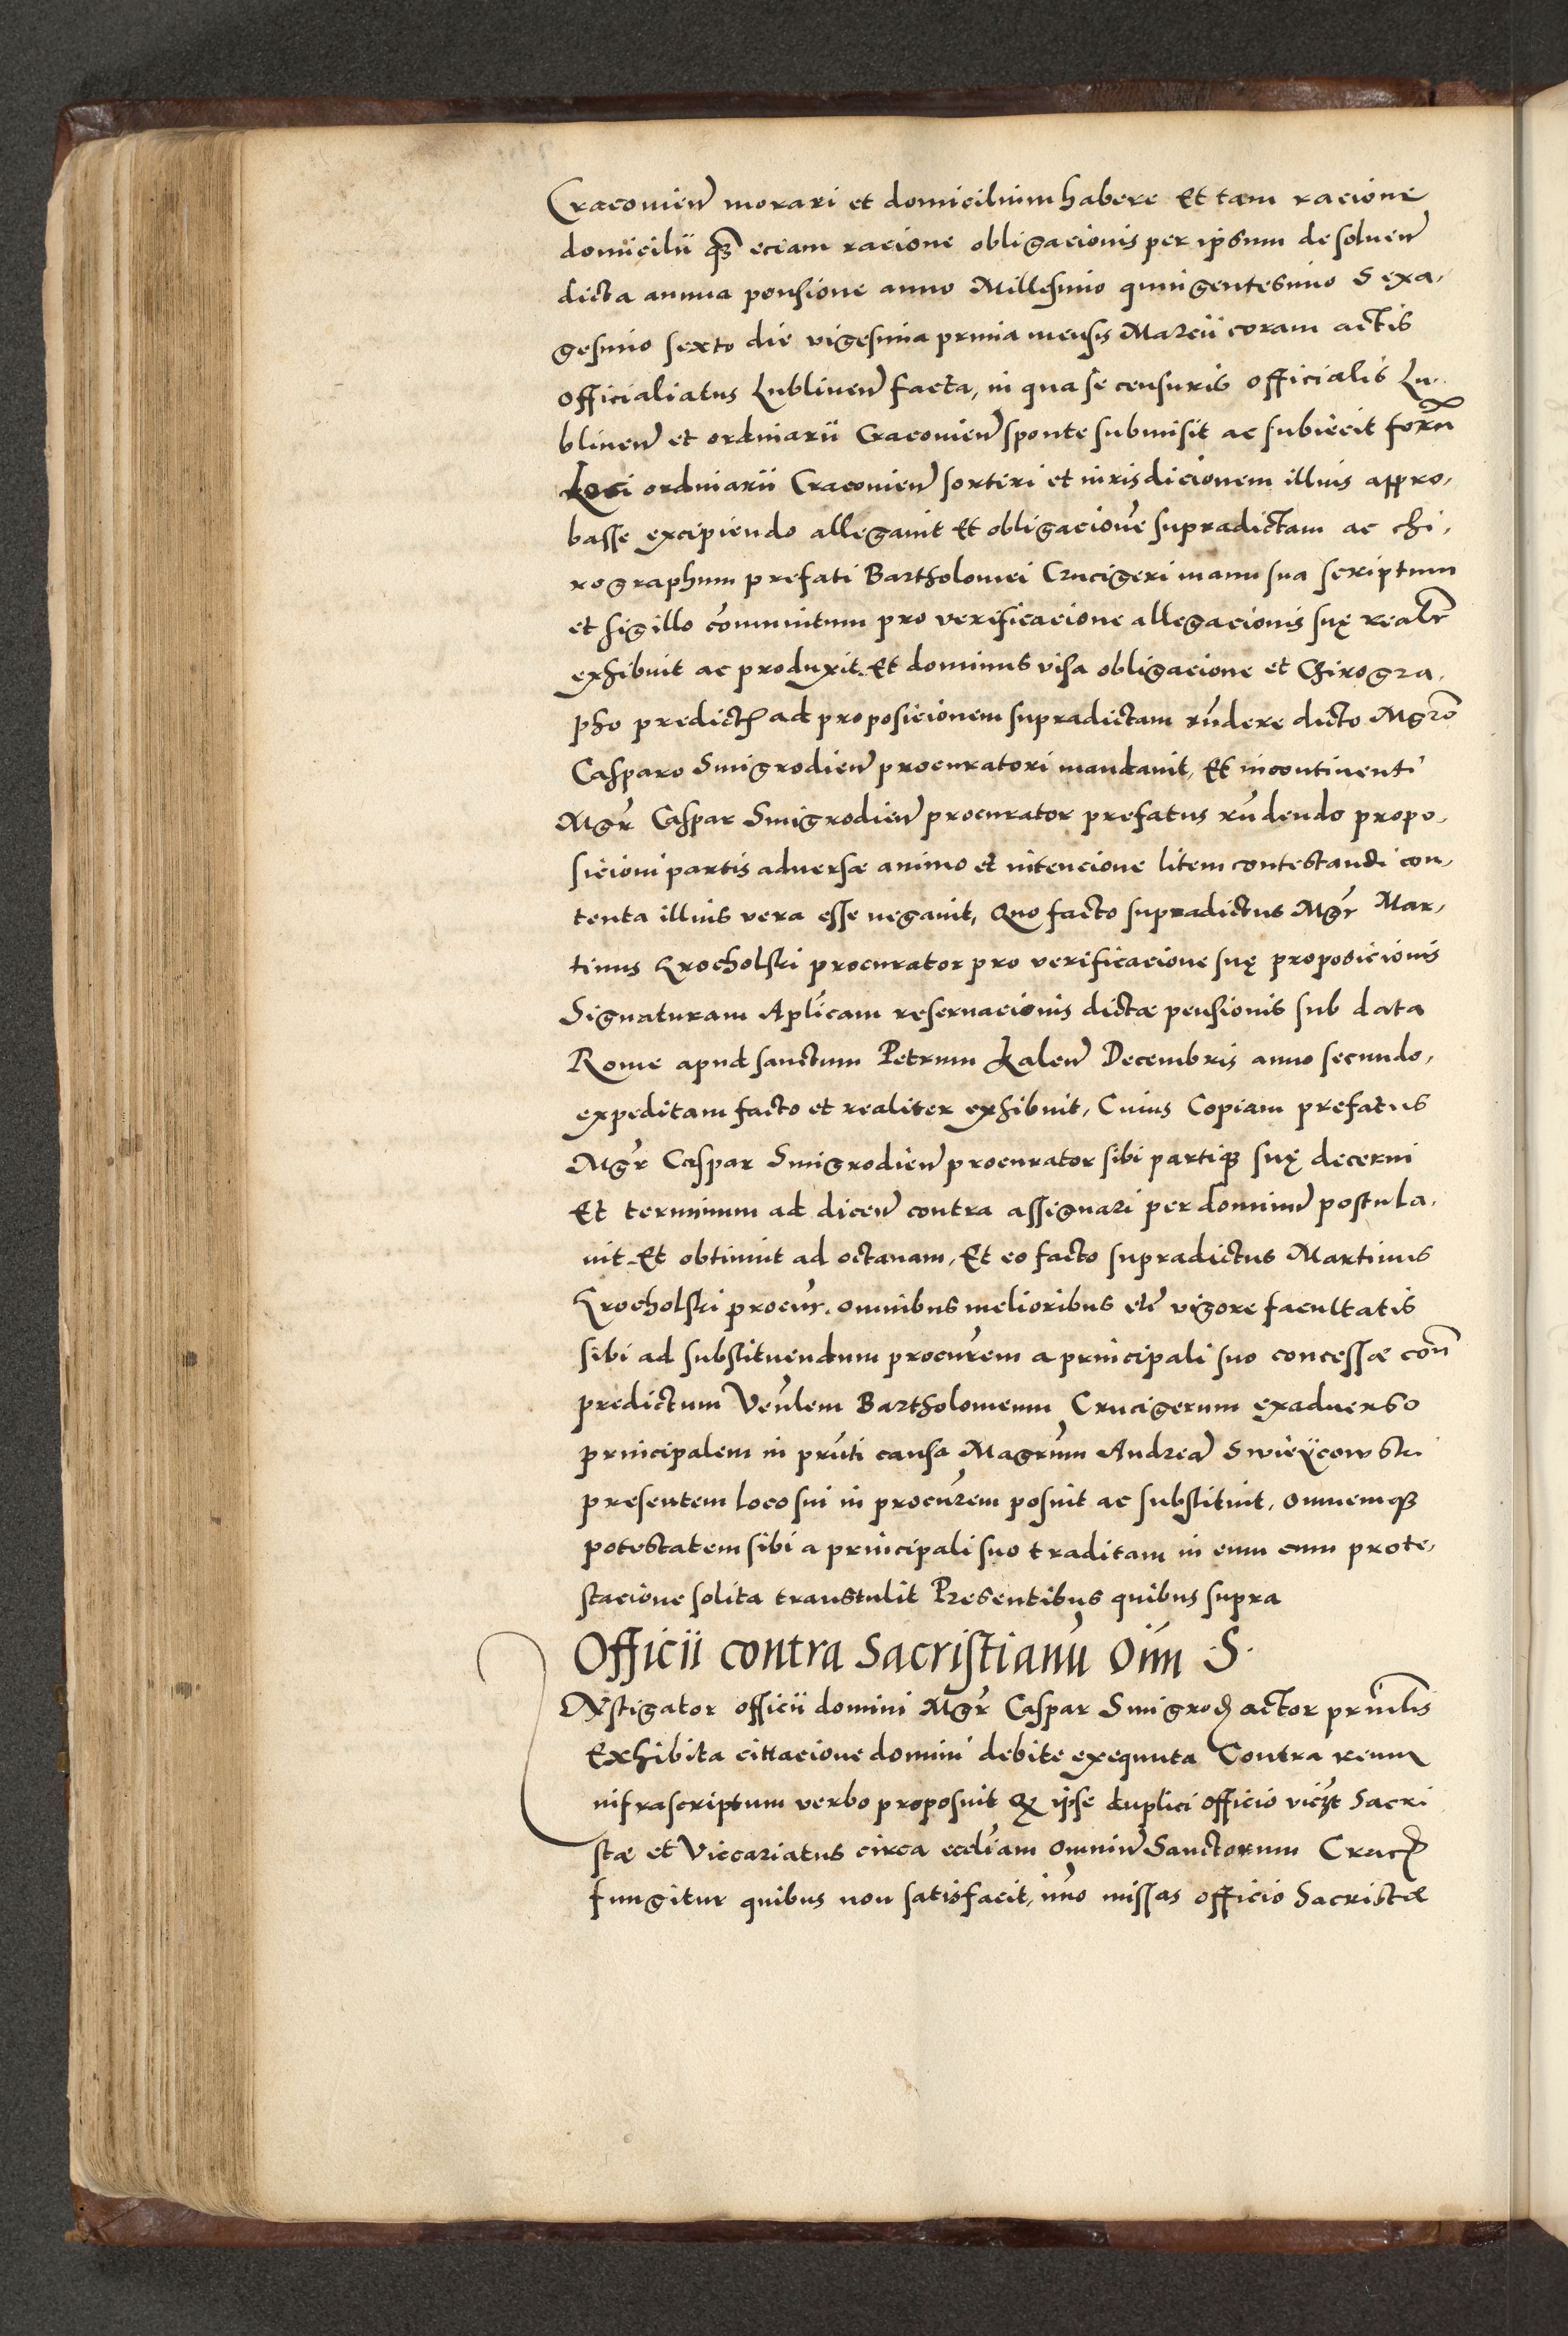 Cracouien morari et domicilium habere Et tam racione
domicilii qʒ eciam racione obligacionis per ipsum de soluen
dicta annua pensione anno Millesimo quingentesimo Sexa,
gesimo sexto die vigesima prima mensis Marcii coram actis
officialiatus Lublinen facta, in qua se censuris officialis Lu,
blinen et ordinarii Cracouien sponte submisit ac subiecit foru
Loci ordinarii Cracouien sortiri et iurisdicionem illius appro,
basse excipiendo allegauit Et obligacione supradictam ac chi,
rographum prefati Bartholomei Crucigeri manu sua scriptum
et sigillo comunitum pro verificacione allegacionis suę realr
exhibuit ac produxit. Et dominus visa obligacione et Chirogra,
pho predict ad proposicionem supradictam rndere dicto Mgro
Casparo Smigrodien procuratori mandauit, Et incontinenti
Mgr Caspar Smigrodien procurator prefatus rndendo propo,
sicioni partis aduersæ animo et intencione litem contestandi con,
tenta illius vera esse negauit, Quo facto supradictus Mgr Mar,
tinus Krocholski procurator pro verificacione suę proposicionis
Signaturam Aplicam reseruacionis dictæ pensionis sub data
Rome apud sanctum Petrum kalen Decembris anno secundo,
expeditam facto et realiter exhibuit, Cuius Copiam prefatus
Mgr Caspar Smigrodien procurator sibi partiqʒ suę decerni
Et terminum ad dicen contra assignari per dominu postula,
uit. Et obtinuit ad octauam, Et eo facto supradictus Martinus
Krocholski procur. omnibus melioribus eti vigore facultatis
sibi ad substituendum procurem a principali suo concessæ con
predictum Venlem Bartholomeum Crucigerum exaduerso
principalem in pruti causa Magrum Andrea Swieÿcowski
presentem loco sui in procurem posuit ac substituit, omnemqʒ
potestatem sibi a principali suo traditam in eum cum prote,
stacione solita transtulit Presentibus quibus supra
Officii contra Sacristianu Oim S.
INstigator officii domini Mgr Caspar Smigrod actor prinlis
Exhibita cittacione domini debite exequuta Contra reum
infrascriptum verbo proposuit Qʒ ipse duplici officio viczt Sacri
stæ et Viccariatus circa eccliam omniu Sanctorum Crac
fungitur quibus non satisfacit, imo missas officio Sacristæ